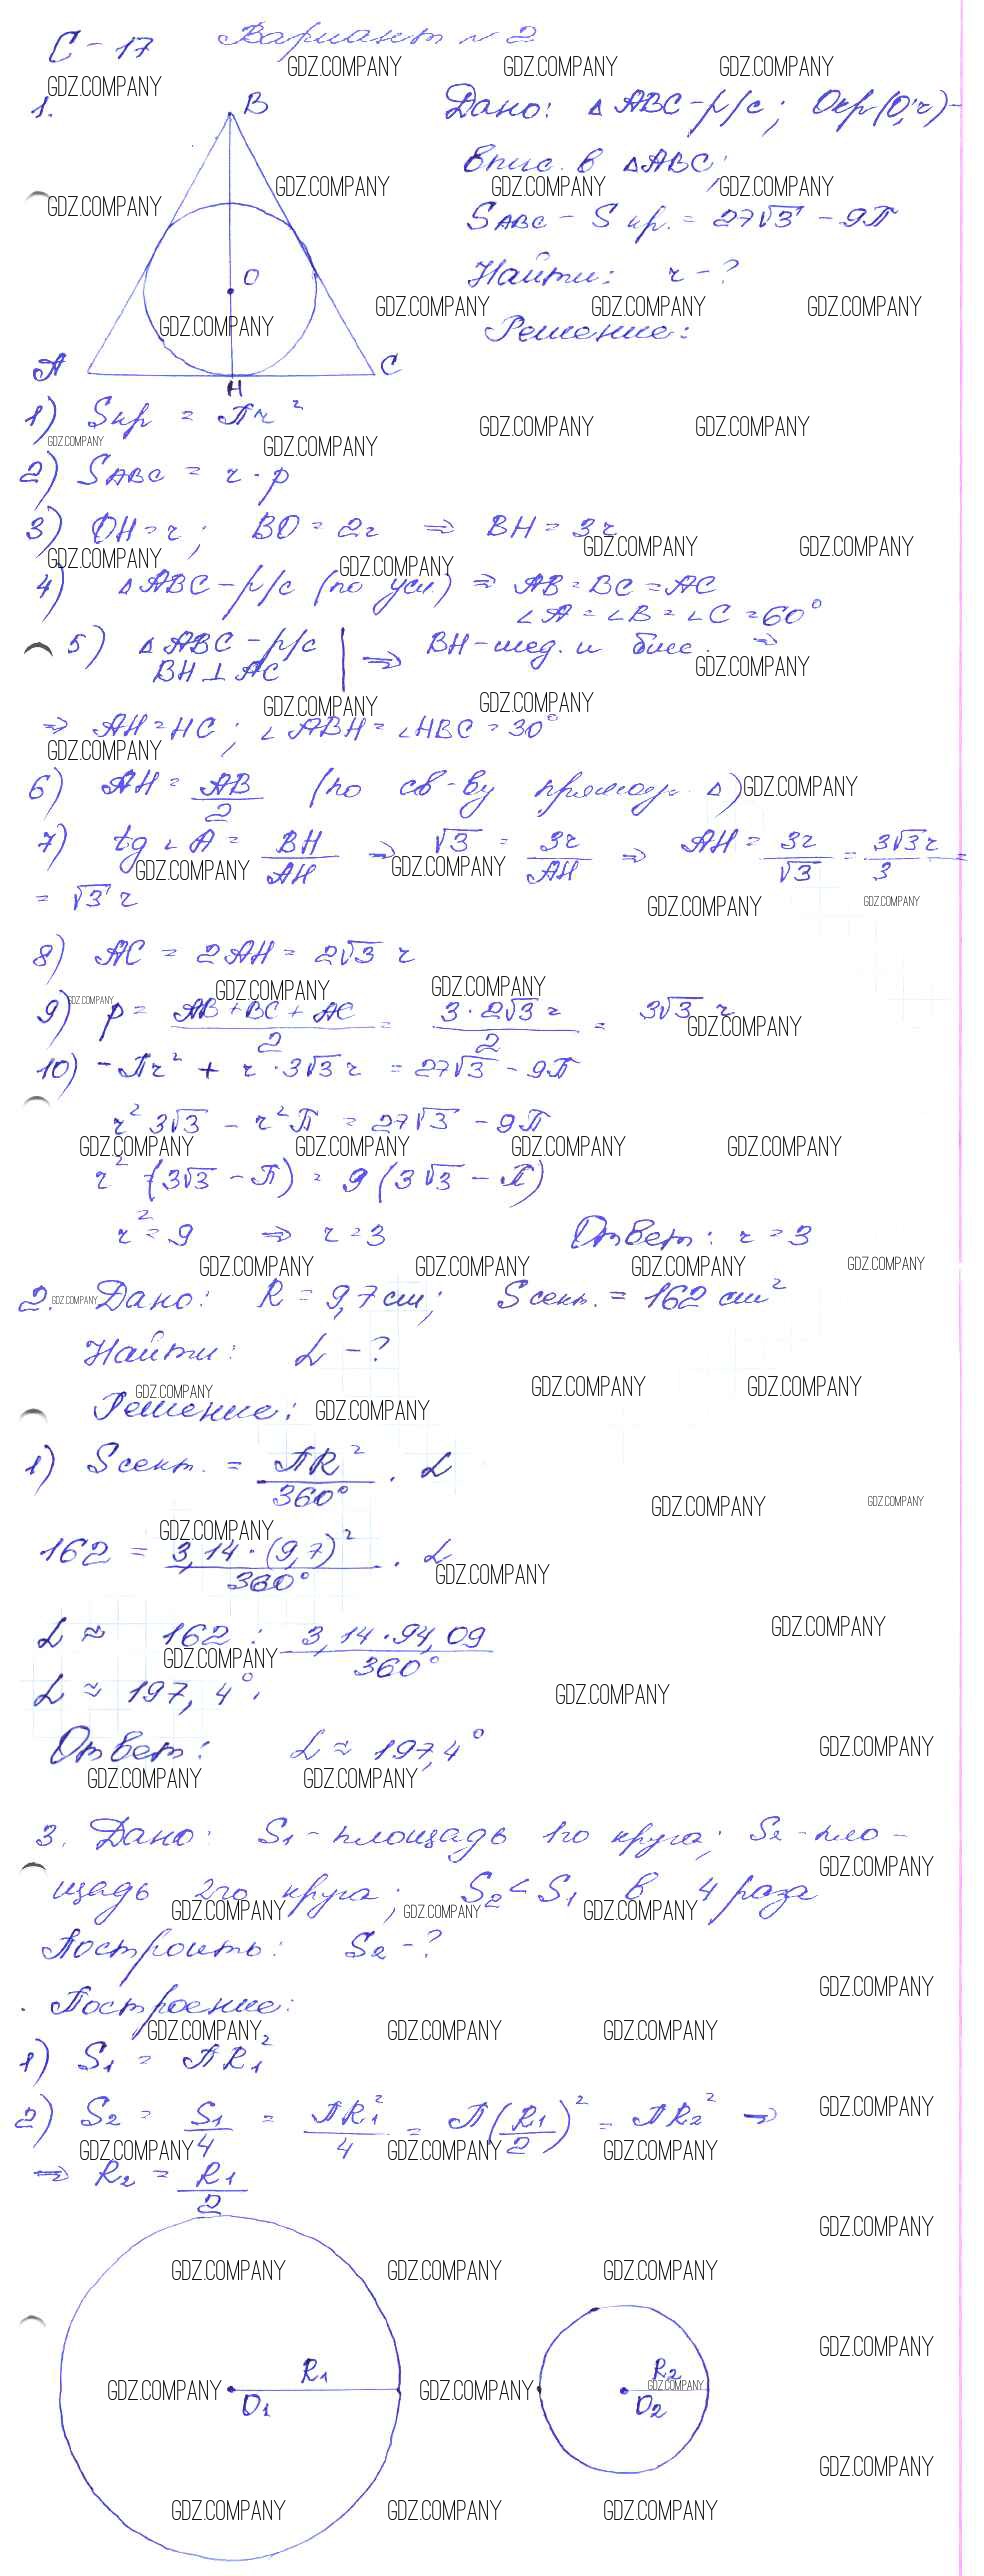 С - 17 Вариант № 2
1.
B
O
A
C
H
Дано: Δ ABC - р/с; Окр(O; r) -
впис. в Δ ABC;
S ABC - S кр. = 27√3 - 9π
Найти: r - ?
Решение:
1) Sкр = πr²
2) S ABC = r · p
3) OH = r; BO = 2r ⇒ BH = 3r
4) Δ ABC - р/с (по усл.) ⇒ AB = BC = AC
∠A = ∠B = ∠C = 60°
5) Δ ABC - р/с
BH ⊥ AC | ⇒ BH - мед. и бисс. ⇒
⇒ AH = HC; ∠ABH = ∠HBC = 30°
6) AH = AB/2 (по св-ву прямоуг. Δ)
7) tg ∠A = BH/AH ⇒ √3 = 3r/AH ⇒ AH = 3r/√3 = 3√3 r/3 =
= √3 r
8) AC = 2AH = 2√3 r
9) p = (AB + BC + AC)/2 = (3 · 2√3 r)/2 = 3√3 r
10) -πr² + r · 3√3 r = 27√3 - 9π
r² 3√3 - r² π = 27√3 - 9π
r² (3√3 - π) = 9 (3√3 - π)
r² = 9 ⇒ r = 3 Ответ: r = 3
2. Дано: R = 9,7 см; Sсект. = 162 см²
Найти: α - ?
Решение:
1) Sсект. = πR²/360° · α
162 = 3,14 · (9,7)²/360° · α
α ≈ 162 : 3,14 · 94,09/360°
α ≈ 197,4°.
Ответ: α ≈ 197,4°
3. Дано: S₁ - площадь 1го круга; S₂ - пло -
щадь 2го круга; S₂ < S₁ в 4 раза
Построить: S₂ - ?
Построение:
1) S₁ = πR₁²
2) S₂ = S₁/4 = πR₁²/4 = π(R₁/2)² = πR₂² ⇒
⇒ R₂ = R₁/2
R₁
O₁
R₂
O₂
GDZ.COMPANY